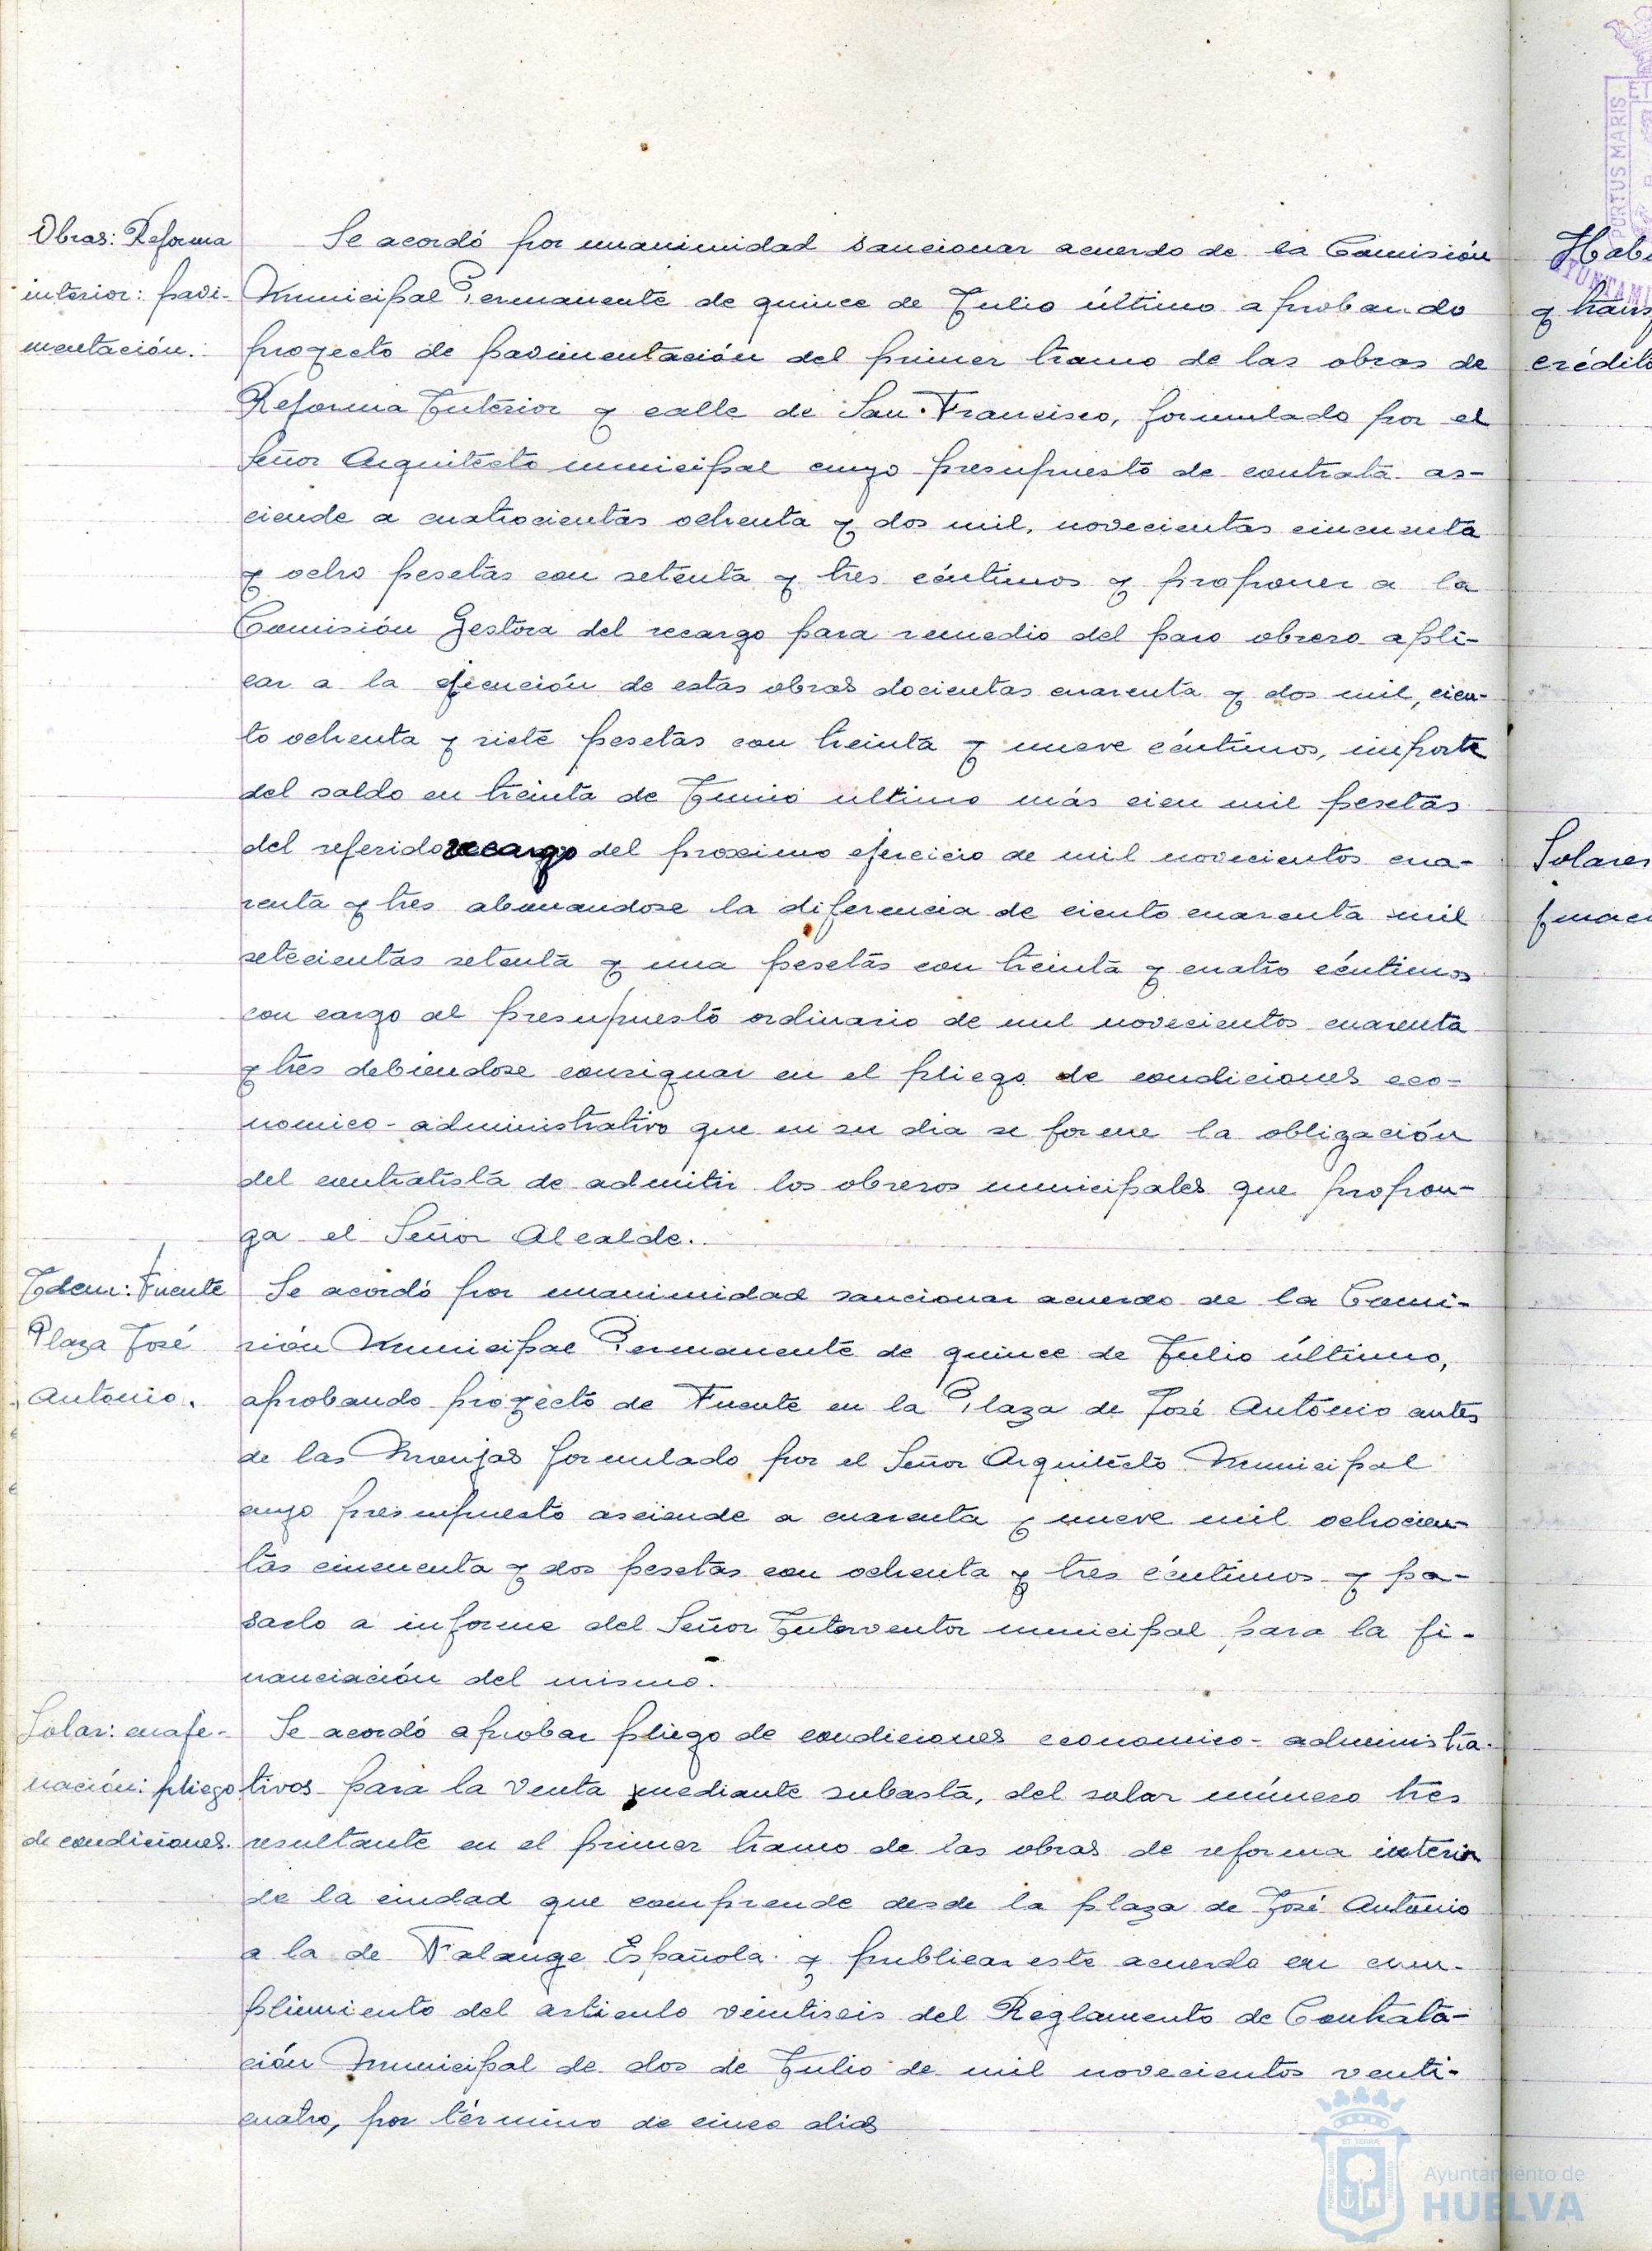 Obras: Reforma
interior: pavi-
mentación.
Se acordó por unanimidad sancionar acuerdo de la Comisión
Municipal Permanente de quince de Julio último aprobando
proyecto de pavimentación del primer tramo de las obras de
Reforma Interior y calle de San Francisco, formulado por el
Señor Arquitecto municipal cuyo presupuesto de contrata as-
ciende a cuatrocientas ochenta y dos mil, novecientas cincuenta
y ocho pesetas con setenta y tres céntimos y proponer a la
Comisión Gestora del recargo para remedio del paro obrero apli-
car a la ejecución de estas obras docientas cuarenta y dos mil, cien-
to ochenta y siete pesetas con treinta y nueve céntimos, importe
del saldo en treinta de Junio ultimo más cien mil pesetas
del referido recargo del proximo ejercicio de mil novecientos cua-
renta y tres abonandose la diferencia de ciento cuarenta mil
setecientas setenta y una pesetas con treinta y cuatro céntimos
con cargo al presupuesto ordinario de mil novecientos cuarenta
y tres debiendose consignar en el pliego de condiciones eco-
nomico-administrativo que en su dia se forme la obligación
del contratista de admitir los obreros municipales que propon-
ga el Señor Alcalde.
Idem: Fuente
Plaza José
Antonio.
Se acordó por unanimidad sancionar acuerdo de la Comi-
sión Municipal Permanente de quince de Julio último,
aprobando proyecto de Fuente en la Plaza de José Antonio antes
de las Monjas formulado por el Señor Arquitecto Municipal
cuyo presupuesto asciende a cuarenta y nueve mil ochocien-
tas cincuenta y dos pesetas con ochenta y tres céntimos y pa-
sarlo a informe del Señor Interventor municipal para la fi-
nanciación del mismo.
Solar: enaje-
nación: pliego
de condiciones.
Se acordó aprobar pliego de condiciones economico-administra-
tivos para la venta mediante subasta, del solar número tres
resultante en el primer tramo de las obras de reforma interior
de la ciudad que comprende desde la plaza de José Antonio
a la de Falange Española y publicar este acuerdo en cum-
plimiento del articulo veintiseis del Reglamento de Contrata-
ción Municipal de dos de Julio de mil novecientos venti-
cuatro, por término de cinco dias
y trans
crédito
Solares
PORTUS MARIS
AYUNTAMI
Ayuntamiento de
HUELVA